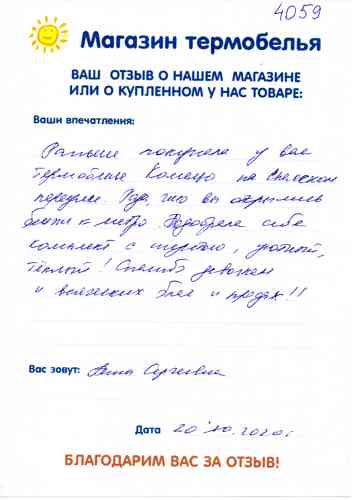 4059
Магазин термобелья
ВАШ ОТЗЫВ О НАШЕМ МАГАЗИНЕ
ИЛИ О КУПЛЕННОМ У НАС ТОВАРЕ:
Ваши впечатления:
Раньше покупала у вас
термобелье Комецо на Спасском
переулке. Рада, что вы открылись
ближе к метро. Подобрала себе
комплект с шерстью, уютный,
тёплый! Спасибо девочкам
и всяческих благ и продаж!!
Вас зовут: Сергеевна
Дата 20.10.2020г.
БЛАГОДАРИМ ВАС ЗА ОТЗЫВ!